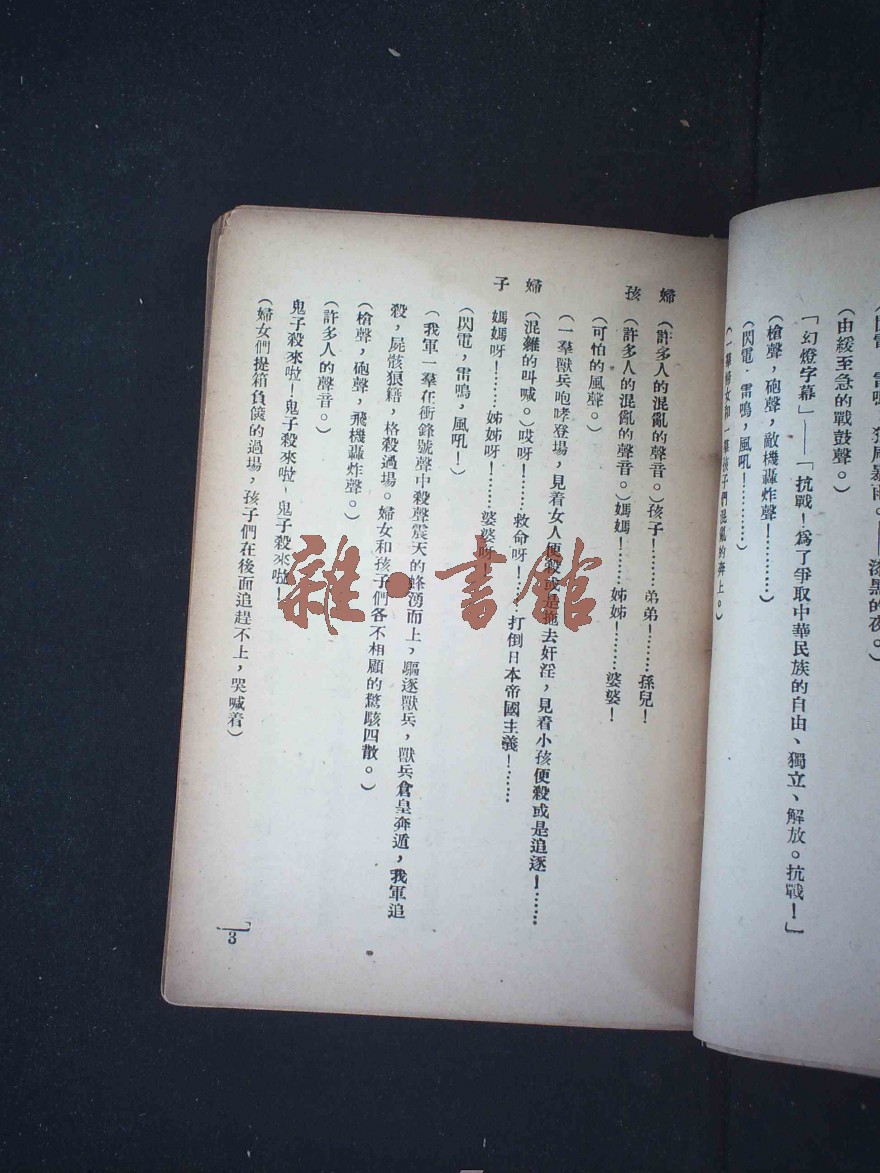 閃電 雷鳴 狂風暴雨。——漆黑的夜。)
(由緩至急的戰鼓聲。)
「幻燈字幕」——「抗戰!爲了爭取中華民族的自由、獨立、解放。抗戰!」
(槍聲,砲聲,敵機轟炸聲!………)
(閃電.雷鳴,風吼!…………)
(一羣婦女和一羣孩子們混亂的奔上。)
婦 (許多人的混亂的聲音。)孩子!………弟弟!………孫兒!
孩 (許多人的混亂的聲音。)媽媽!………姊姊!………婆婆!
(可怕的風聲。)
(一羣獸兵咆哮登場,見着女人便殺或是拖去奸淫,見着小孩便殺或是追逐!……
婦 (混雜的叫喊。)哎呀!………救命呀!………打倒日本帝國主義!………
子 媽媽呀!………姊姊呀!………婆婆呀!
(閃電,雷鳴,風吼!)
(我軍一羣在衝鋒號聲中殺聲震天的蜂湧而上,驅逐獸兵,獸兵倉皇奔遁,我軍追
殺,屍骸狼籍,格殺過場。婦女和孩子們各不相顧的驚駭四散。)
(槍聲,砲聲,飛機轟炸聲。)
(許多人的聲音。)
鬼子殺來啦!鬼子殺來啦!鬼子殺來啦!
(婦女們提箱負篋的過場,孩子們在後面追趕不上,哭喊着)
3
雜·書館